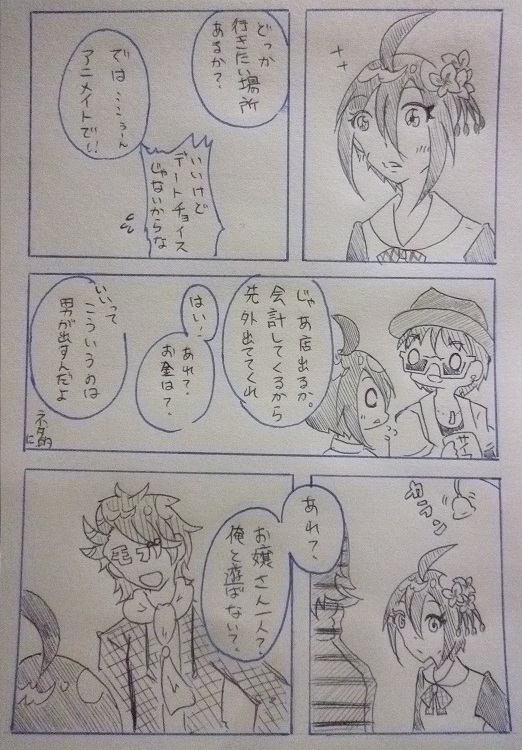 どっか
行きたい場所
あるか？
では ここ うーん
アニメイトで!!
いいけど
デートチョイス
じゃないからな
じゃあ店出るか。
会計してくるから
先外出ててくれ
はい！
あれ？
お金は？
いいって
こういうのは
男が出すんだよ
ネタ的
に
カラン
あれ？
お嬢さん一人？
俺と遊ばない？
モブ